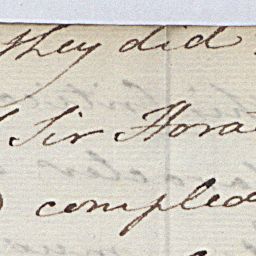 they did
Sir Horat
compled